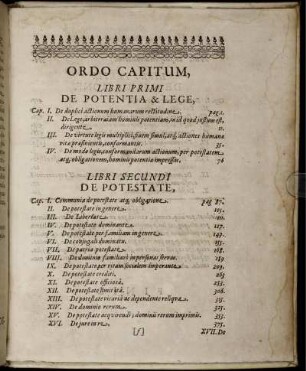 ORDO CAPITUM,
LIBRI PRIMI
DE POTENTIA & LEGE,
Cap. I. De duplici actionum humanarum rectitudine. pag. 1.
II. De Lege, arbitrariam hominis potentiam, in id quod justum est,
dirigente. 11.
III. De virtute legis multiplici,
vitæ proficientis, conformantur. 35.
IV. De modo legis, conformativum actionum, per potestatem
atq, obligationem, homini potentiæ impressis. 76
LIBRI SECUNDI
DE POTESTATE,
Cap. I. Communia de potestate atq, obligatione. pag 87.
II. De potestate in genere.
III. De Libertate.
IV. De potestate dominante.
V. De potestate per familiam in genere.
VI. De conjugali dominatu.
VII. De patria potestate.
VIII. De dominio familiari impersonas servas. 159.
IX. De potestate per vitam socialem imperante. 209.
X. De potestate crediti. 263.
XI. De potestate officiaria. 283.
XII. De potestate limitata. 308.
XIII. De potestate vicaria ac dependente reliqua. 315.
XIV. De dominio rerum. 325.
XV. De potestate acquirendi dominii rerum imprimis. 335.
XVI. De jure in re. 375.
XVII. De